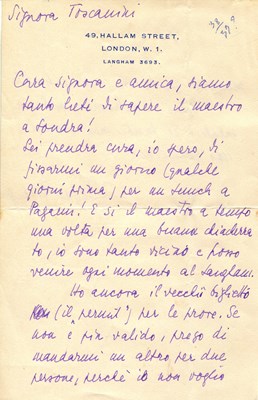 Signora Toscanini
38/39?
49, HALLAM STREET,
LONDON, W. 1.
LANGHAM 3693.
Cara Signora e amica, siamo
tanto lieti di sapere il maestro
a Londra!
Lei prendra cura, io spero, di
fissarmi un giorno (qualche
giorni prima) per un lunch a
Pagani! E si il maestro a tempo
una volta per una buona chiaccera
ta, io sono tanto vicino e posso
venire ogni momento al Langham.
Ho ancora il vecchio biglietto
(il permit') per le prove. Se
non è piu valido, prego di
mandarmi un altro per due
persone, perchè io non voglio